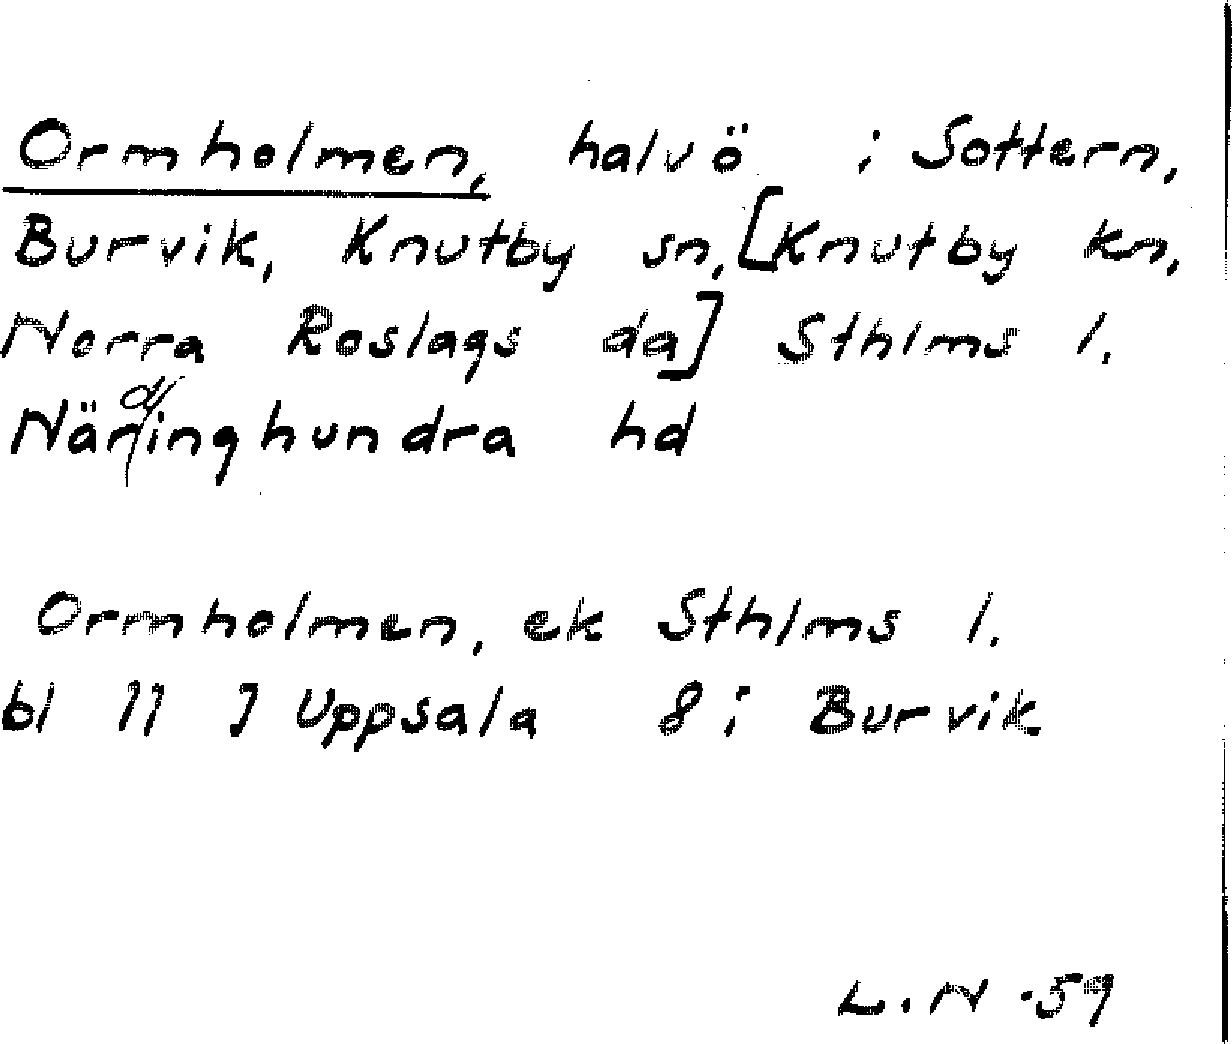 Ormholmen, halvö i Sottern,
Burvik, Knutby sn, [Knutby kn,
Norra Roslags da] Sthlms l.
Närdinghundra hd
Ormholmen, ek Sthlms l.
bl 11 J Uppsala 8 i Burvik
L. N -59